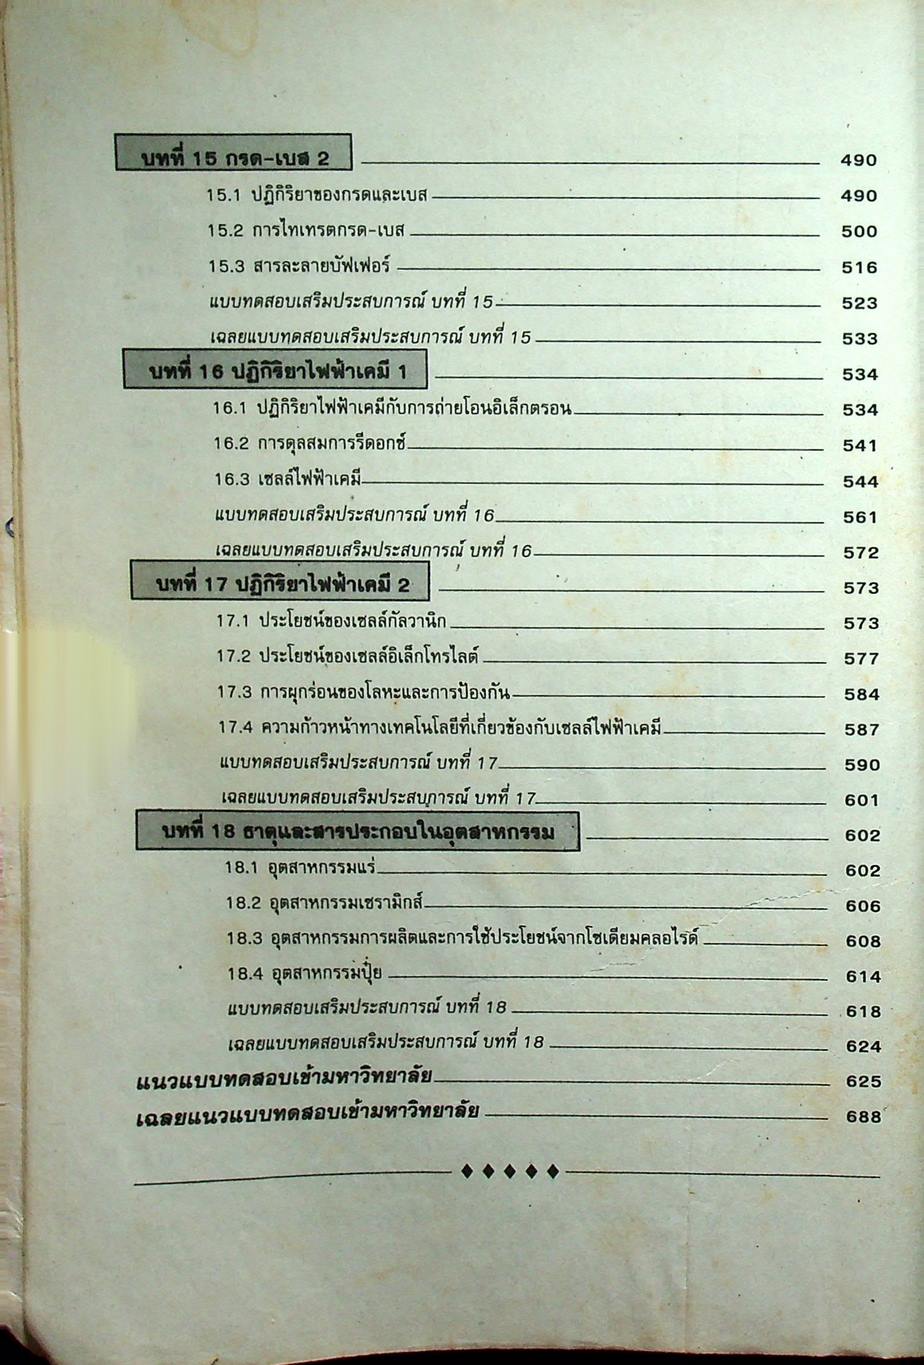 บทที่ 15 กรด-เบส 2 490
15.1 ปฏิกิริยาของกรดและเบส 490
15.2 การไทเทรตกรด-เบส 500
15.3 สารละลายบัฟเฟอร์ 516
แบบทดสอบเสริมประสบการณ์ บทที่ 15 523
เฉลยแบบทดสอบเสริมประสบการณ์ บทที่ 15 533
บทที่ 16 ปฏิกิริยาไฟฟ้าเคมี 1 534
16.1 ปฏิกิริยาไฟฟ้าเคมีกับการถ่ายโอนอิเล็กตรอน 534
16.2 การดุลสมการรีดอกซ์ 541
16.3 เซลล์ไฟฟ้าเคมี 544
แบบทดสอบเสริมประสบการณ์ บทที่ 16 561
เฉลยแบบทดสอบเสริมประสบการณ์ บทที่ 16 572
บทที่ 17 ปฏิกิริยาไฟฟ้าเคมี 2 573
17.1 ประโยชน์ของเซลล์กัลวานิก 573
17.2 ประโยชน์ของเซลล์อิเล็กโทรไลต์ 577
17.3 การผุกร่อนของโลหะและการป้องกัน 584
17.4 ความก้าวหน้าทางเทคโนโลยีที่เกี่ยวข้องกับเซลล์ไฟฟ้าเคมี 587
แบบทดสอบเสริมประสบการณ์ บทที่ 17 590
เฉลยแบบทดสอบเสริมประสบการณ์ บทที่ 17 601
บทที่ 18 ธาตุและสารประกอบในอุตสาหกรรม 602
18.1 อุตสาหกรรมแร่ 602
18.2 อุตสาหกรรมเซรามิกส์ 606
18.3 อุตสาหกรรมการผลิตและการใช้ประโยชน์จากโซเดียมคลอไรด์ 608
18.4 อุตสาหกรรมปุ๋ย 614
แบบทดสอบเสริมประสบการณ์ บทที่ 18 618
เฉลยแบบทดสอบเสริมประสบการณ์ บทที่ 18 624
แนวแบบทดสอบเข้ามหาวิทยาลัย 625
เฉลยแนวแบบทดสอบเข้ามหาวิทยาลัย 688